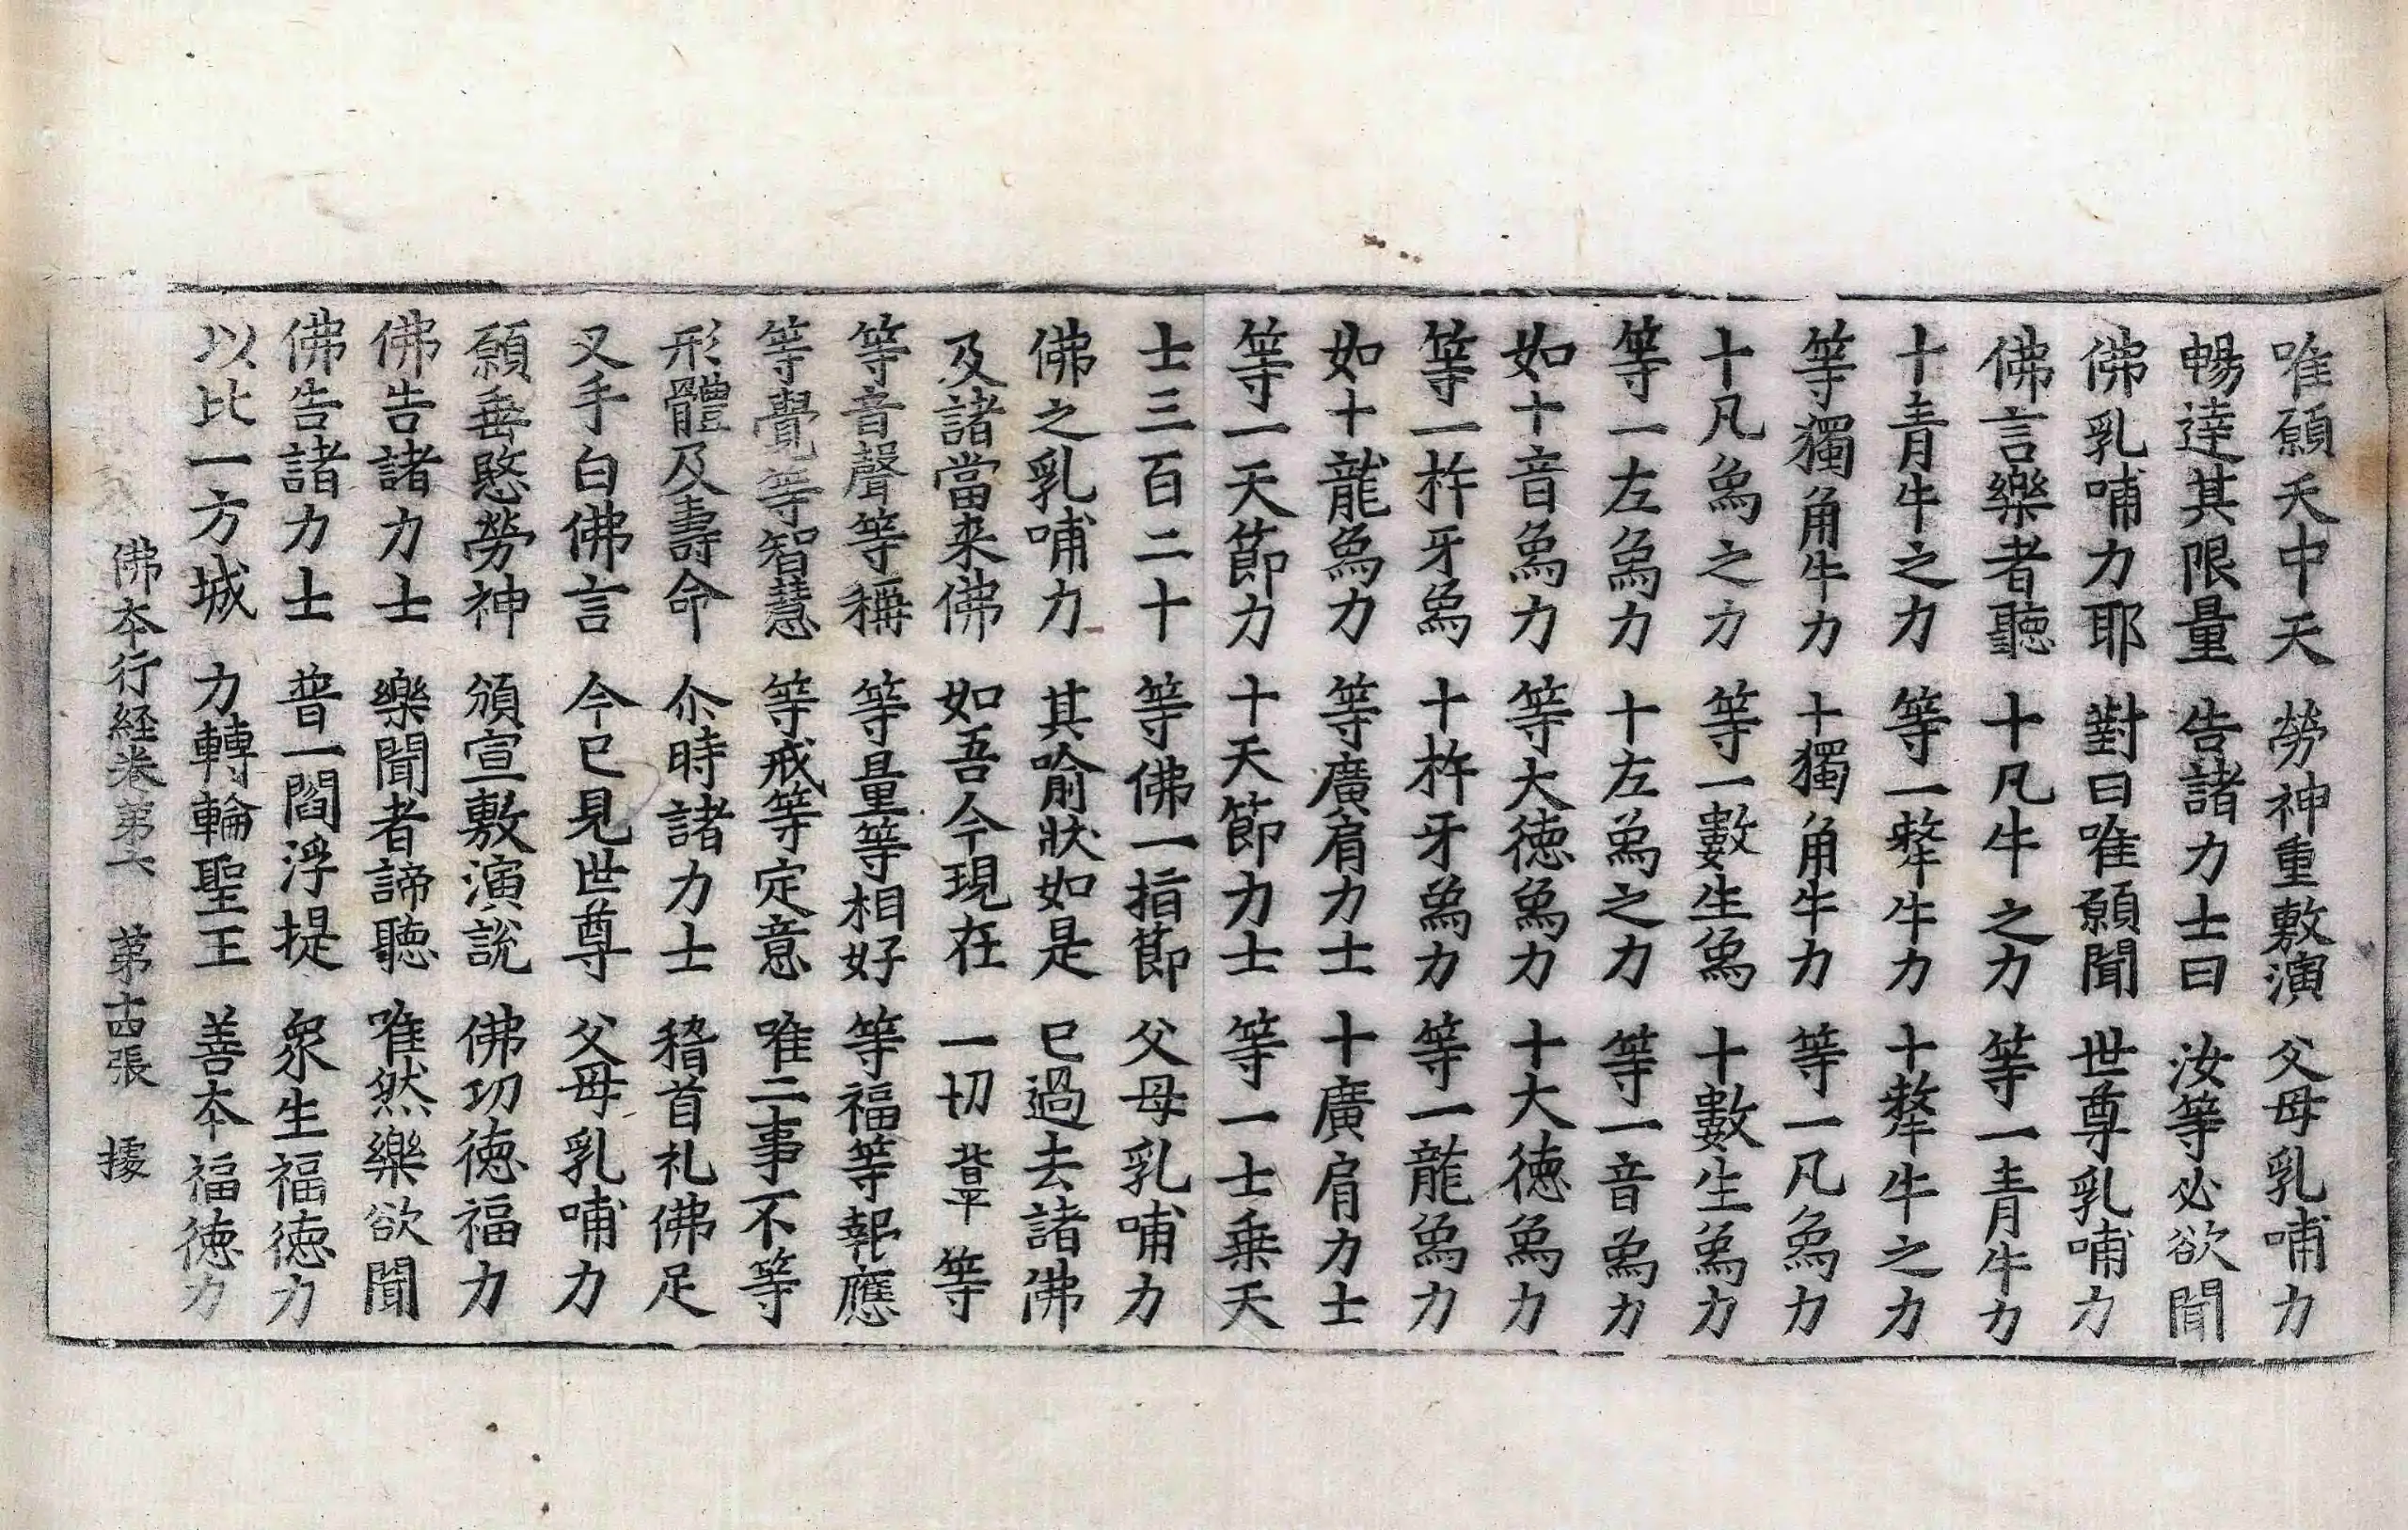 唯願天中天　勞神重敷演　父母乳哺力
暢達其限量　告諸力士曰　汝等必欲聞
佛乳哺力耶　對曰唯願聞　世尊乳哺力
佛言樂者聽　十凡牛之力　等一青牛力
十青牛之力　等一犛牛力　十犛牛之力
等獨角牛力　十獨角牛力　等一凡象力
十凡象之力　等一數生象　十數生象力
等一左象力　十左象之力　等一音象力
如十音象力　等大徳象力　十大徳象力
等一杵牙象　十杵牙象力　等一龍象力
如十龍象力　等廣肩力士　十廣肩力士
等一天節力　十天節力士　等一士乗天
士三百二十　等佛一指節　父母乳哺力
佛之乳哺力　其喻狀如是　已過去諸佛
及諸當来佛　如吾今現在　一切皆平等
等音聲等稱　等量等相好　等福等報應
等覺等智慧　等戒等定意　唯二事不等
形體及壽命　尒時諸力士　稽首礼佛足
叉手白佛言　今已見世尊　父母乳哺力
願垂愍勞神　頒宣敷演説　佛功徳福力
佛告諸力士　樂聞者諦聽　唯然樂欲聞
佛告諸力士　普一閻浮提　衆生福徳力
以比一方城　力轉輪聖王　善本福徳力
佛本行経卷第六　第十四張　據